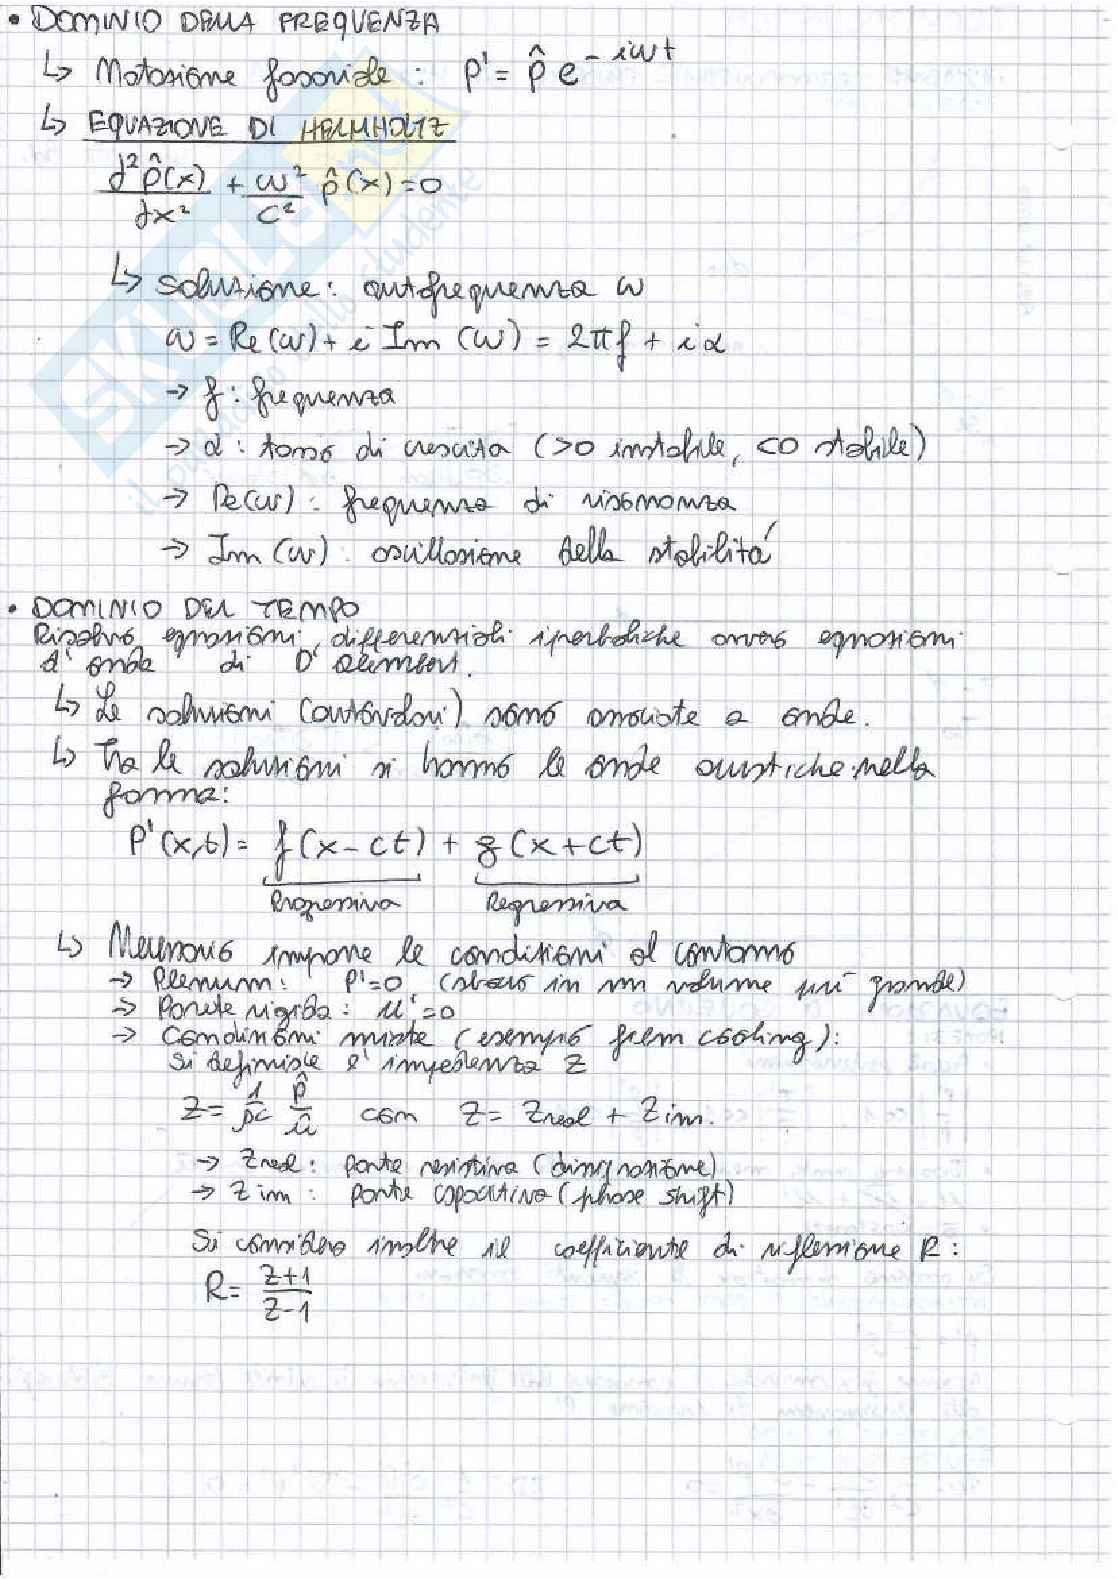 • DOMINIO DELLA FREQUENZA
↳ Notazione fasoriale : p' = p̂ e^{-iωt}
↳ EQUAZIONE DI HELMHOLTZ
d²p̂(x)/dx² + ω²/c² p̂(x) = 0
↳ Soluzione: autofrequenza ω
ω = Re(ω) + i Im(ω) = 2πf + iα
→ f : frequenza
→ α : tasso di crescita (>0 instabile, <0 stabile)
→ Re(ω) : frequenza di risonanza
→ Im(ω) : oscillazione della stabilità
• DOMINIO DEL TEMPO
Risolvo equazioni differenziali iperboliche ovvero equazioni
d'onda di D'Alembert.
↳ Le soluzioni (autovalori) sono associate a onde.
↳ Tra le soluzioni si hanno le onde acustiche nella
forma:
P'(x,t) = f(x-ct) + g(x+ct)
Progressiva Regressiva
↳ Necessario imporre le condizioni al contorno
→ Plenum: P'=0 (sbocco in un volume più grande)
→ Parete rigida: u'=0
→ Condizioni miste (esempio film cooling):
Si definisce l'impedenza Z
Z = 1/ρc p̂/û con Z = Zreal + Zim.
→ Zreal: parte resistiva (dissipazione)
→ Zim : parte capacitiva (phase shift)
Si considera inoltre il coefficiente di riflessione R:
R = Z+1/Z-1
SKUOLA.net